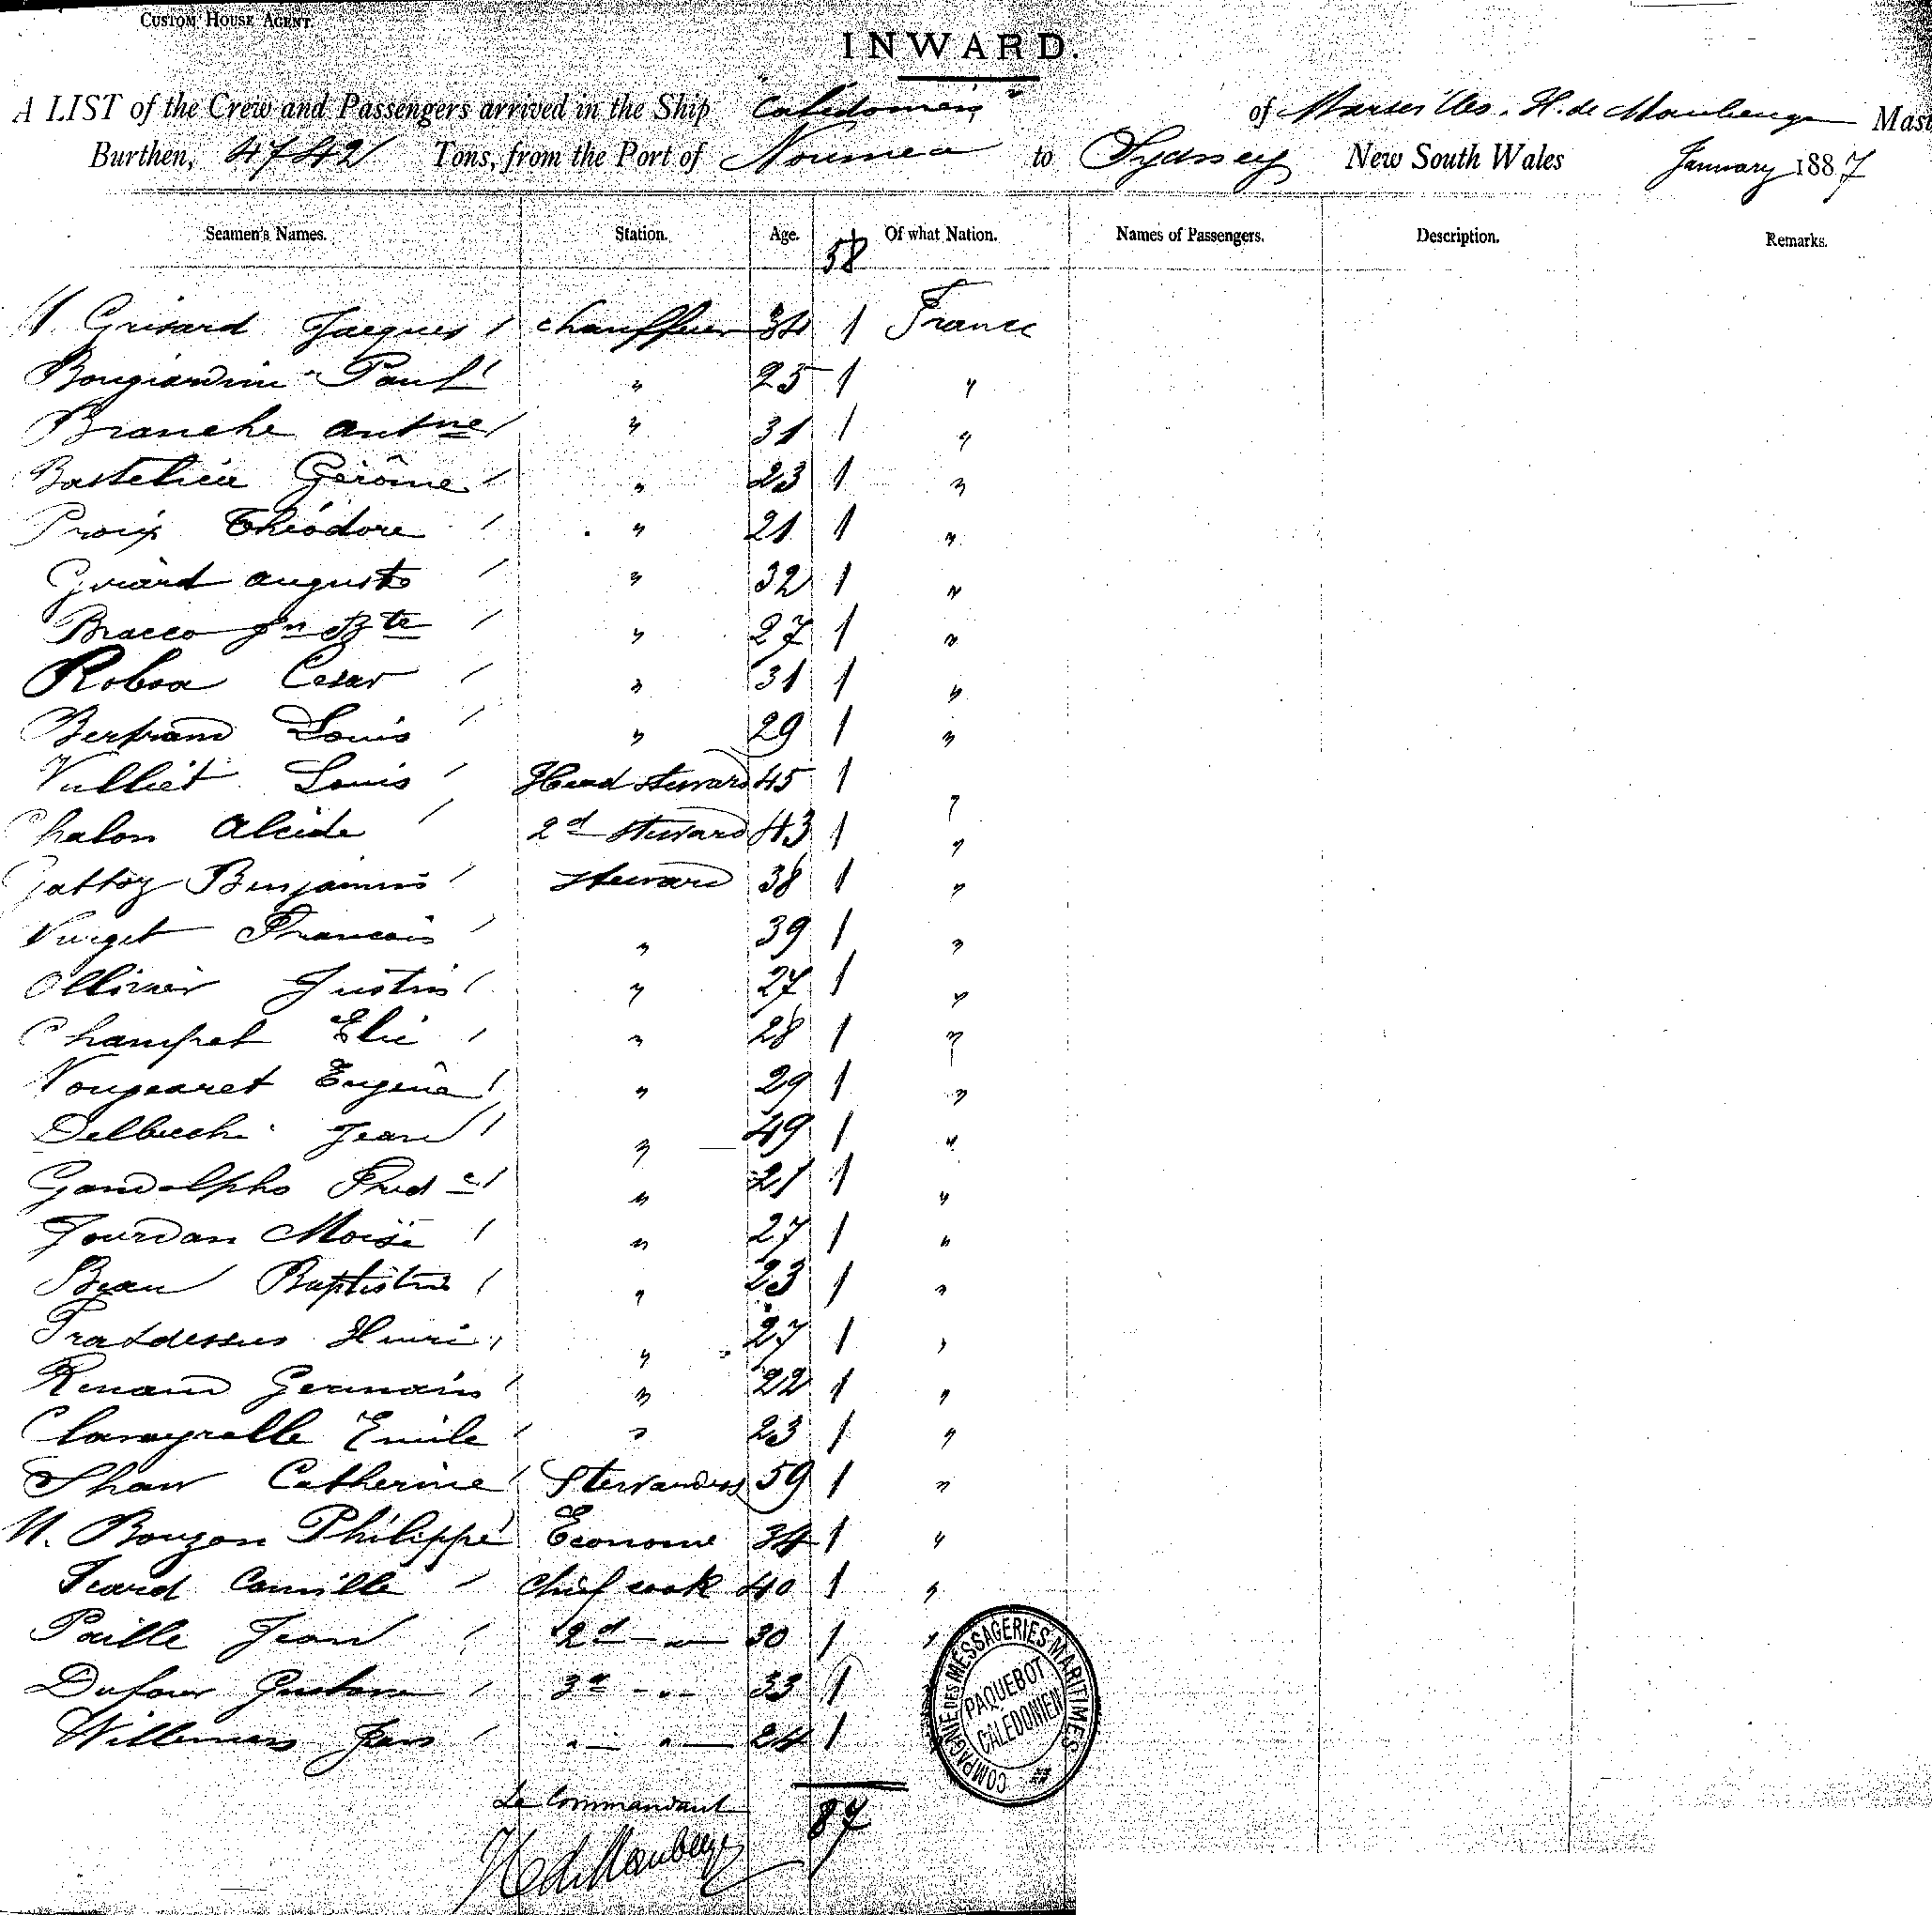 CUSTOM HOUSE AGENT.
INWARD.
A LIST of the Crew and Passengers arrived in the Ship "Caledonien" of Marseilles. H. de Maubeuge Mast
Burthen, 4742 Tons, from the Port of Noumea to Sydney New South Wales January 1887
Seamen's Names. Station. Age. Of what Nation. Names of Passengers. Description. Remarks.
58
Grisard Jacques chauffeur 34 1 France
Bongiardini Paul " 25 1 "
Branche Antne " 31 1 "
Bastelica Gérôme " 23 1 "
Proix Théodore " 21 1 "
Girard Auguste " 32 1 "
Bracco Jn Bte " 27 1 "
Roboa Cesar " 31 1 "
Bertrand Louis " 29 1 "
Vulliet Louis Head steward 45 1 "
Chalon Alcide 2d steward 43 1 "
Gattoz Benjamin steward 38 1 "
Vurget Francois " 39 1 "
Ollivier Justin " 27 1 "
Champet Elie " 28 1 "
Vougearet Eugène " 29 1 "
Delbecchi Jean " 49 1 "
Gandolpho Fred " 21 1 "
Jourdan Moïse " 27 1 "
Beau Baptistin " 23 1 "
Pratdessus Henri " 27 1 "
Renaud Germain " 22 1 "
Clavayrolle Emile " 23 1 "
Shaw Catherine Stewardess 59 1 "
M. Bouzon Philippe Econome 34 1 "
Icard Camille Chief cook 40 1 "
Paille Jean 2d - " - 30 1 "
Dufour Gustave 3d - " - 33 1
Willemers Jean " - " - 24 1
COMPAGNIE DES MESSAGERIES MARITIMES
PAQUEBOT
CALEDONIEN
Le Commandant
87
H de Maubeuge